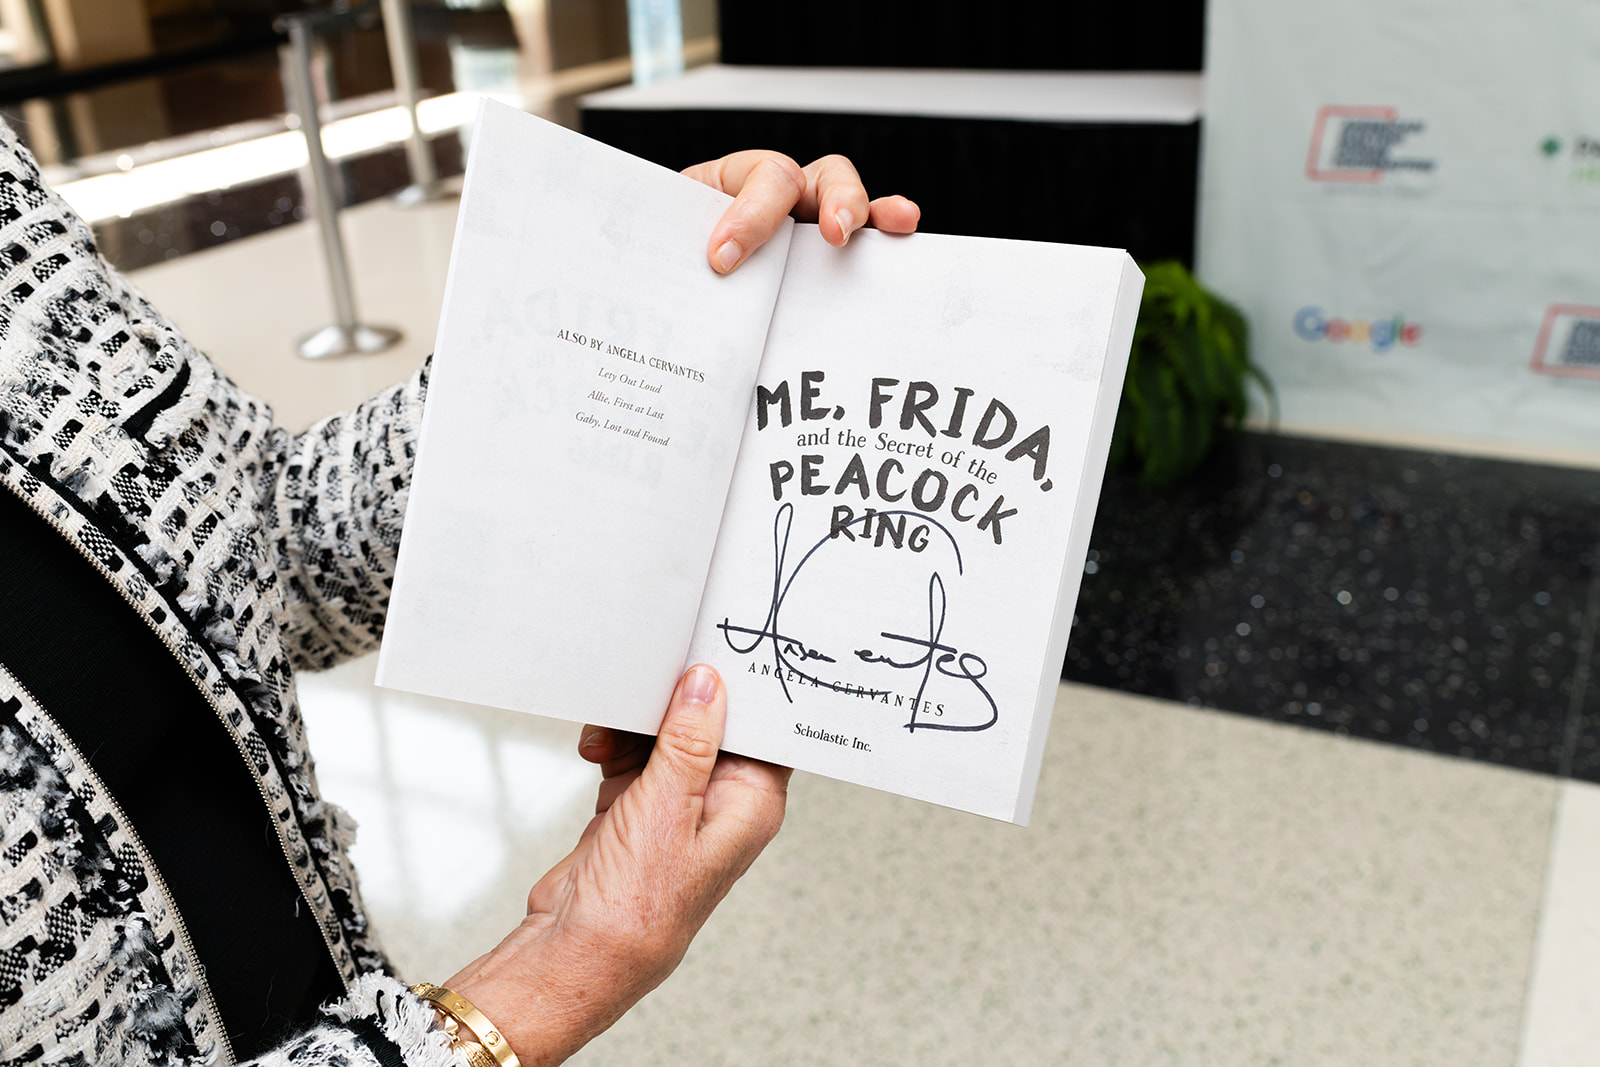 ALSO BY ANGELA CERVANTES
Lety Out Loud
Allie, First at Last
Gaby, Lost and Found
ME, FRIDA,
and the Secret of the
PEACOCK
RING
ANGELA CERVANTES
Scholastic Inc.
Google